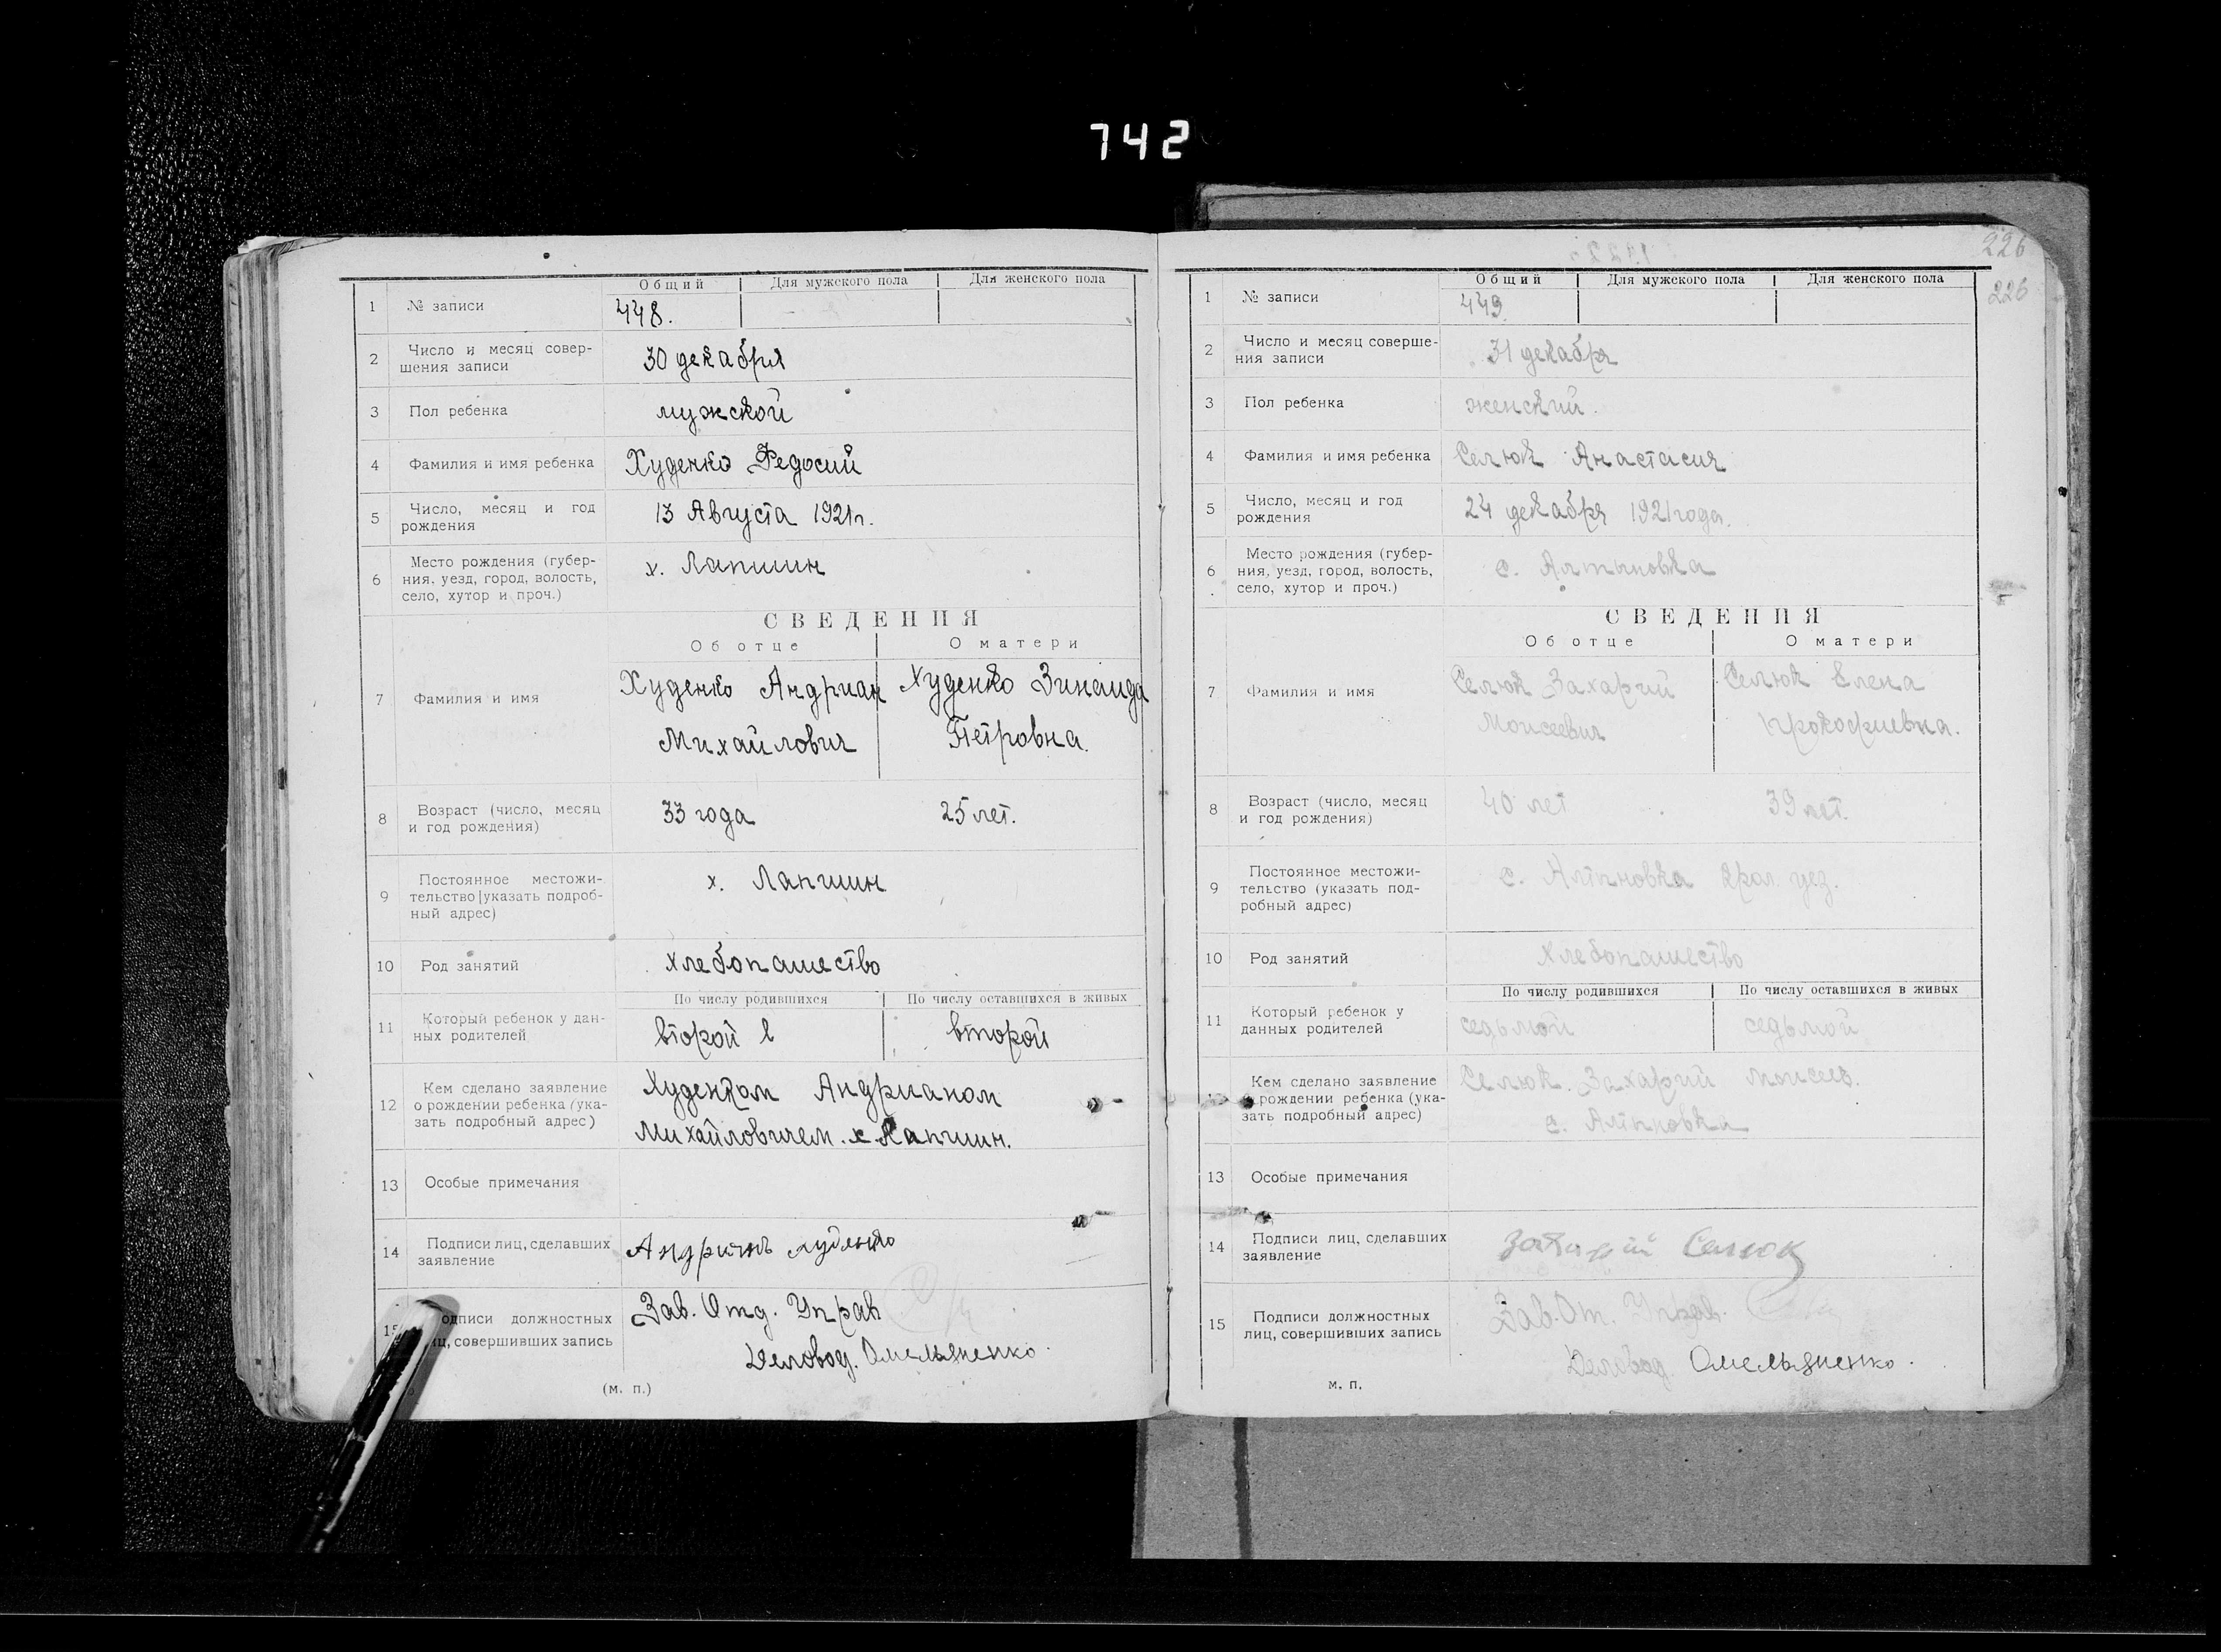 742
Общий Для мужского пола Для женского пола
1 № записи 448.
2 Число и месяц совер-
шения записи 30 декабря
3 Пол ребенка мужской
4 Фамилия и имя ребенка Худенко Федосий
5 Число, месяц и год
рождения 13 Августа 1921г.
6 Место рождения (губер-
ния, уезд, город, волость,
село, хутор и проч.) х. Лапшин
СВЕДЕНИЯ
Об отце О матери
7 Фамилия и имя Худенко Андриан Худенко Зинаида
Михайлович Петровна.
8 Возраст (число, месяц
и год рождения) 33 года 25 лет.
9 Постоянное местожи-
тельство (указать подроб-
ный адрес) х. Лапшин
10 Род занятий хлебопашество
По числу родившихся По числу оставшихся в живых
11 Который ребенок у дан-
ных родителей второй второй
12 Кем сделано заявление
о рождении ребенка (ука-
зать подробный адрес)
Худенком Андрианом
Михайловичем. х. Лапшин.
13 Особые примечания
14 Подписи лиц, сделавших
заявление Андрианъ худенко
15 одписи должностных
иц, совершивших запись
Зав. Отд. Управ
Деловод. Омельяненко.
(м. п.)
226
226
Общий Для мужского пола Для женского пола
1 № записи 449.
2 Число и месяц соверше-
ния записи 31 декабря
3 Пол ребенка женский.
4 Фамилия и имя ребенка Селюк Анастасия
5 Число, месяц и год
рождения 24 декабря 1921 года.
6 Место рождения (губер-
ния, уезд, город, волость,
село, хутор и проч.) с. Алтыновка
СВЕДЕНИЯ
Об отце О матери
7 Фамилия и имя Селюк Захарий Селюк Елена
Моисеевич Прокофиевна.
8 Возраст (число, месяц
и год рождения) 40 лет 39 лет.
9 Постоянное местожи-
тельство (указать под-
робный адрес) с. Алтновка Крол. уез.
10 Род занятий Хлебопашество
По числу родившихся По числу оставшихся в живых
11 Который ребенок у
данных родителей седьмой седьмой
Кем сделано заявление
рождении ребенка (ука-
зать подробный адрес)
Селюк. Захарий Моисеев.
с. Алтновка
13 Особые примечания
14 Подписи лиц, сделавших
заявление Захарий Селюк
15 Подписи должностных
лиц, совершивших запись
Зав. От. Управ.
Деловод. Омельяненко.
м. п.